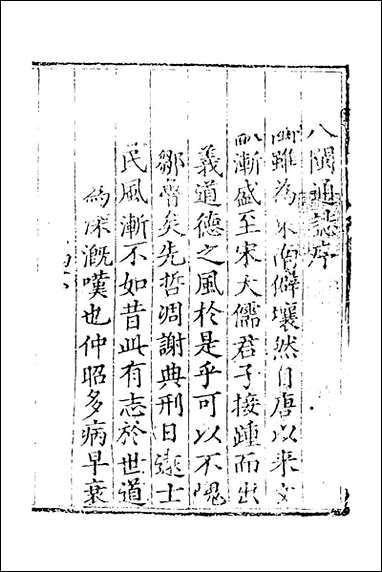 八閩通誌序
閩雖為東南僻壤然自唐以来文
漸盛至宋大儒君子接踵而出
義道德之風於是乎可以不愧
鄒魯矣先哲凋謝典刑日遠士
民風漸不如昔此有志於世道
為深慨嘆也仲昭多病早衰